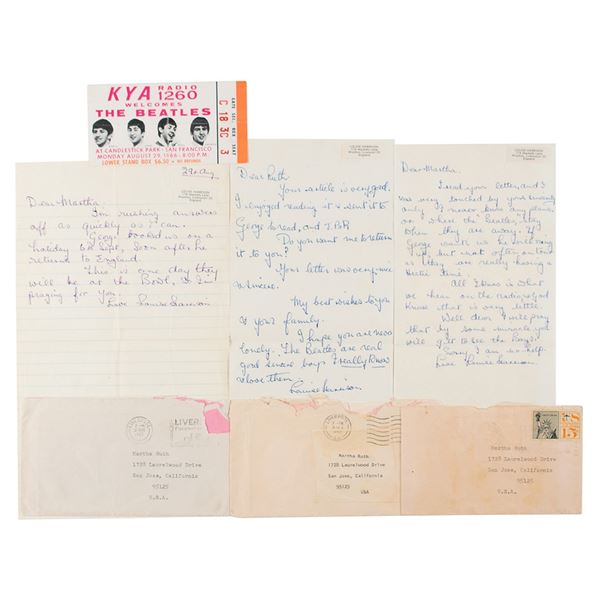 KYA RADIO 1260
WELCOMES
THE BEATLES
AT CANDLESTICK PARK - SAN FRANCISCO
MONDAY AUGUST 29, 1966 - 8:00 P.M.
LOWER STAND BOX $6.50
GATE SEC. BOX SEAT
C 18 3C 3
29th Aug.
Dear Martha.
I'm rushing answers
off as quickly as I can.
George booked us on a
holiday 6th Sept, soon after he
returns to England.
This is one day they
will be at the Bowl,
praying for you.
Love Louise Harrison
Dear Ruth
Your article is very good.
I enjoyed reading it & sent it to
George to read, and
Do you want me to return
it to you?
Your letter was very nice
& sincere.
My best wishes to you
& your family.
I hope you are never
lonely. The Beatles are real
good sincere boys I really know
& love them.
Louise Harrison
Dear Martha.
I read your letter, and I
was very touched by your sincerity
only I never know any plans
or where the "Beatles" stay
when they are away. If
George wants us he will ring
us up, but not often
as they are really having a
hectic time.
All I know is what
we hear on the radio & God
knows that is very little.
Well dear I will pray
that by some miracle you
will get to see the boys!
Sorry I am no help.
Love Louise Harrison.
LIVER
Martha Ruth
1728 Laurelwood Drive
San Jose, California
95125
U.S.A.
Martha Ruth
1728 Laurelwood Drive
San Jose, California
95125
USA
US
15
Martha Ruth
1728 Laurelwood Drive
San Jose, California
95125
U.S.A.